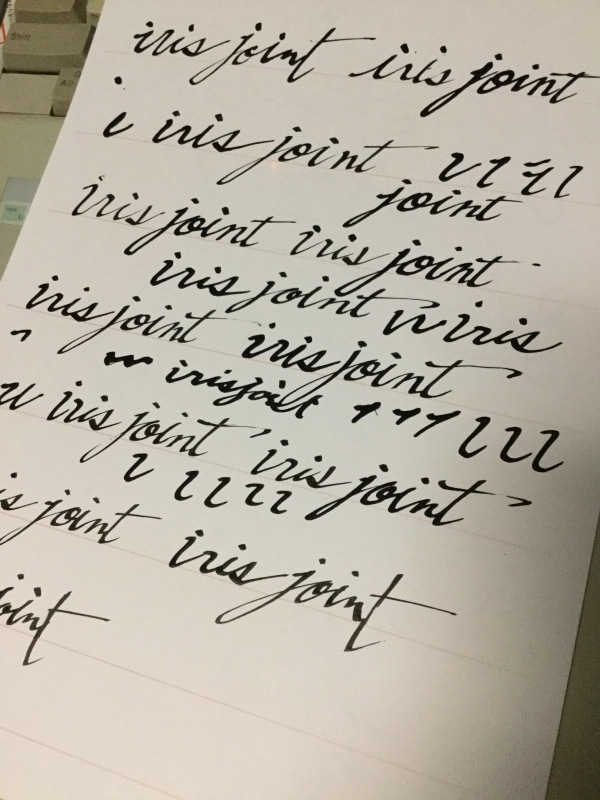 Shift
iris joint iris joint
iris joint
joint
iris joint iris joint
iris joint iris
iris joint iris joint
iris joint
iris joint iris joint
joint iris joint
joint